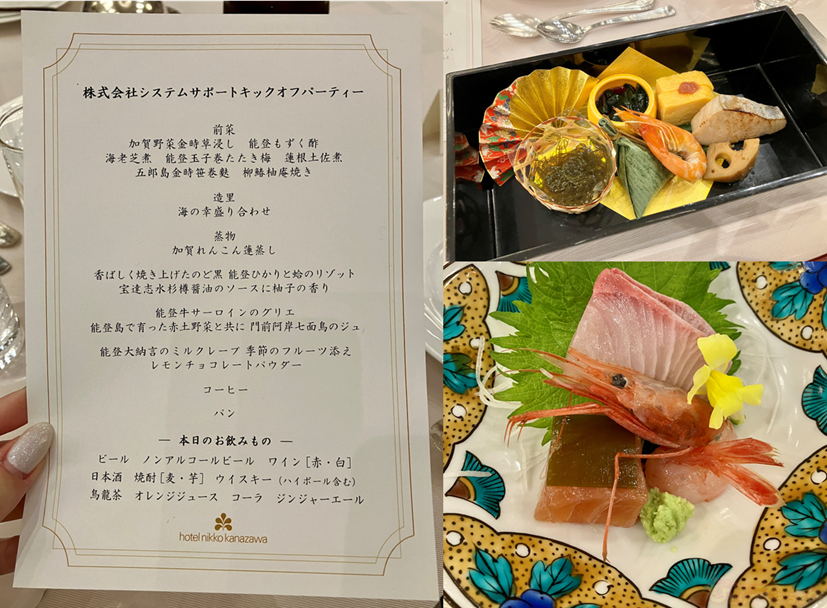 株式会社システムサポートキックオフパーティー
前菜
加賀野菜金時草浸し 能登もずく酢
海老芝煮 能登玉子巻たたき梅 蓮根土佐煮
五郎島金時笹巻麩 柳鰆柚庵焼き
造里
海の幸盛り合わせ
蒸物
加賀れんこん蓮蒸し
香ばしく焼き上げたのど黒 能登ひかりと蛤のリゾット
宝達志水杉樽醤油のソースに柚子の香り
能登牛サーロインのグリエ
能登島で育った赤土野菜と共に 門前阿岸七面鳥のジュ
能登大納言のミルクレープ 季節のフルーツ添え
レモンチョコレートパウダー
コーヒー
パン
― 本日のお飲みもの ―
ビール ノンアルコールビール ワイン[赤・白]
日本酒 焼酎[麦・芋] ウイスキー(ハイボール含む)
烏龍茶 オレンジジュース コーラ ジンジャーエール
hotel nikko kanazawa